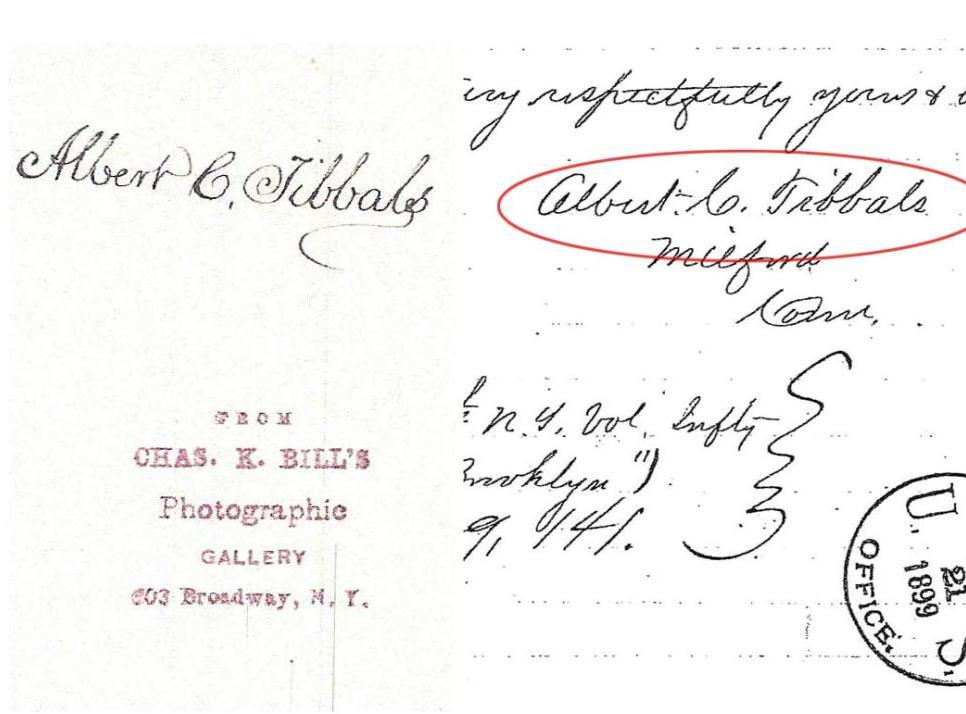 Albert C. Tibbals
FROM
CHAS. K. BILL'S
Photographic
GALLERY
603 Broadway, N. Y.
respectfully yours &
Albert C. Tibbals
Milford
Conn.
N.Y. Vol. Infty
Brooklyn")
9, 141.
U. S.
21
1899
OFFICE.